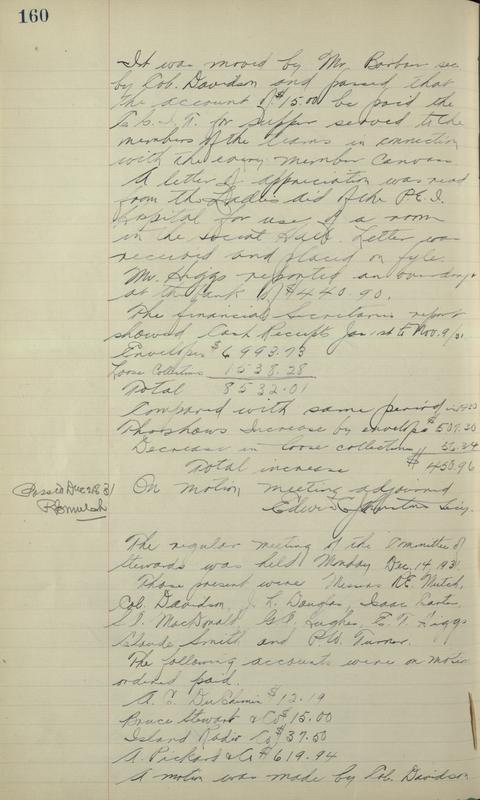 160
It was moved by Mr. Barbour sec
by Col. Davidson and passed that
the account of $15.00 be paid the
for supper served to the
members of the teams in connection
with the every member Canvass
A letter of appreciation was read
from the Ladies Aid of the P.E.I.
Hospital for use of a room
in the Social Hall. Letter was
received and placed on fyle.
Mr. Higgs reported an overdraft
at the bank of $440.90.
The financial Secretaries report
showed Cash Receipts Jan 1st to Nov. 9/31
Envelopes $6993.73
Loose Collections 1538.28
Total 8532.01
Compared with same period in 1930
This shows Increase by envelope $507.20
Decrease in loose collections " 56.24
Total increase $450.96
On motion meeting adjourned
Edwin Johnstone Secy.
Passed Dec 28/31
The regular meeting of the Committee of
Stewards was held Monday Dec. 14, 1931
Those present were Messrs N.E. Mutch,
Col. Davidson, J. L. Douglas, Isaac Carter,
MacDonald, G.E. Hughes, E. T. Higgs
Claude Smith and P.W. Turner.
The following accounts were on motion
ordered paid.
A. E. DuChemin $12.19
Bruce Stewart & Co $15.00
Island Radio Co $37.50
A. Pickard & Co $619.94
A motion was made by Col. Davidson